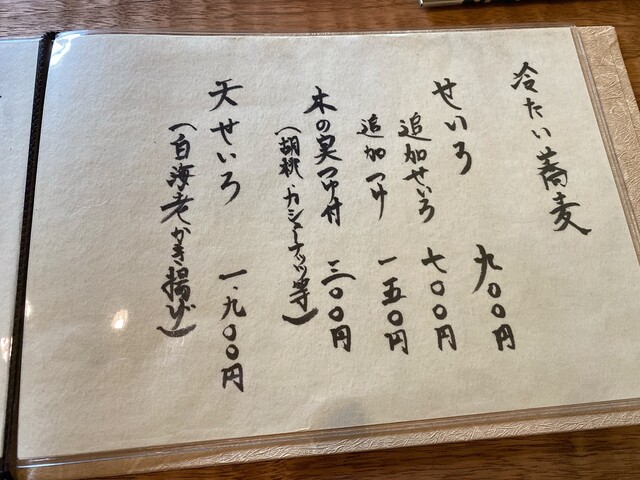 冷たい蕎麦
せいろ 九〇〇円
追加せいろ 七〇〇円
追加つゆ 一五〇円
木の実つゆ付 三〇〇円
(胡桃・カシューナッツ等)
天せいろ 一、九〇〇円
(白海老かき揚げ)